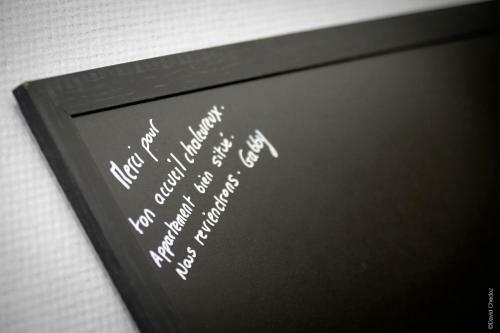 Merci pour
ton accueil chaleureux.
Appartement bien situé.
Nous reviendrons. Gabby
©David Chedoz